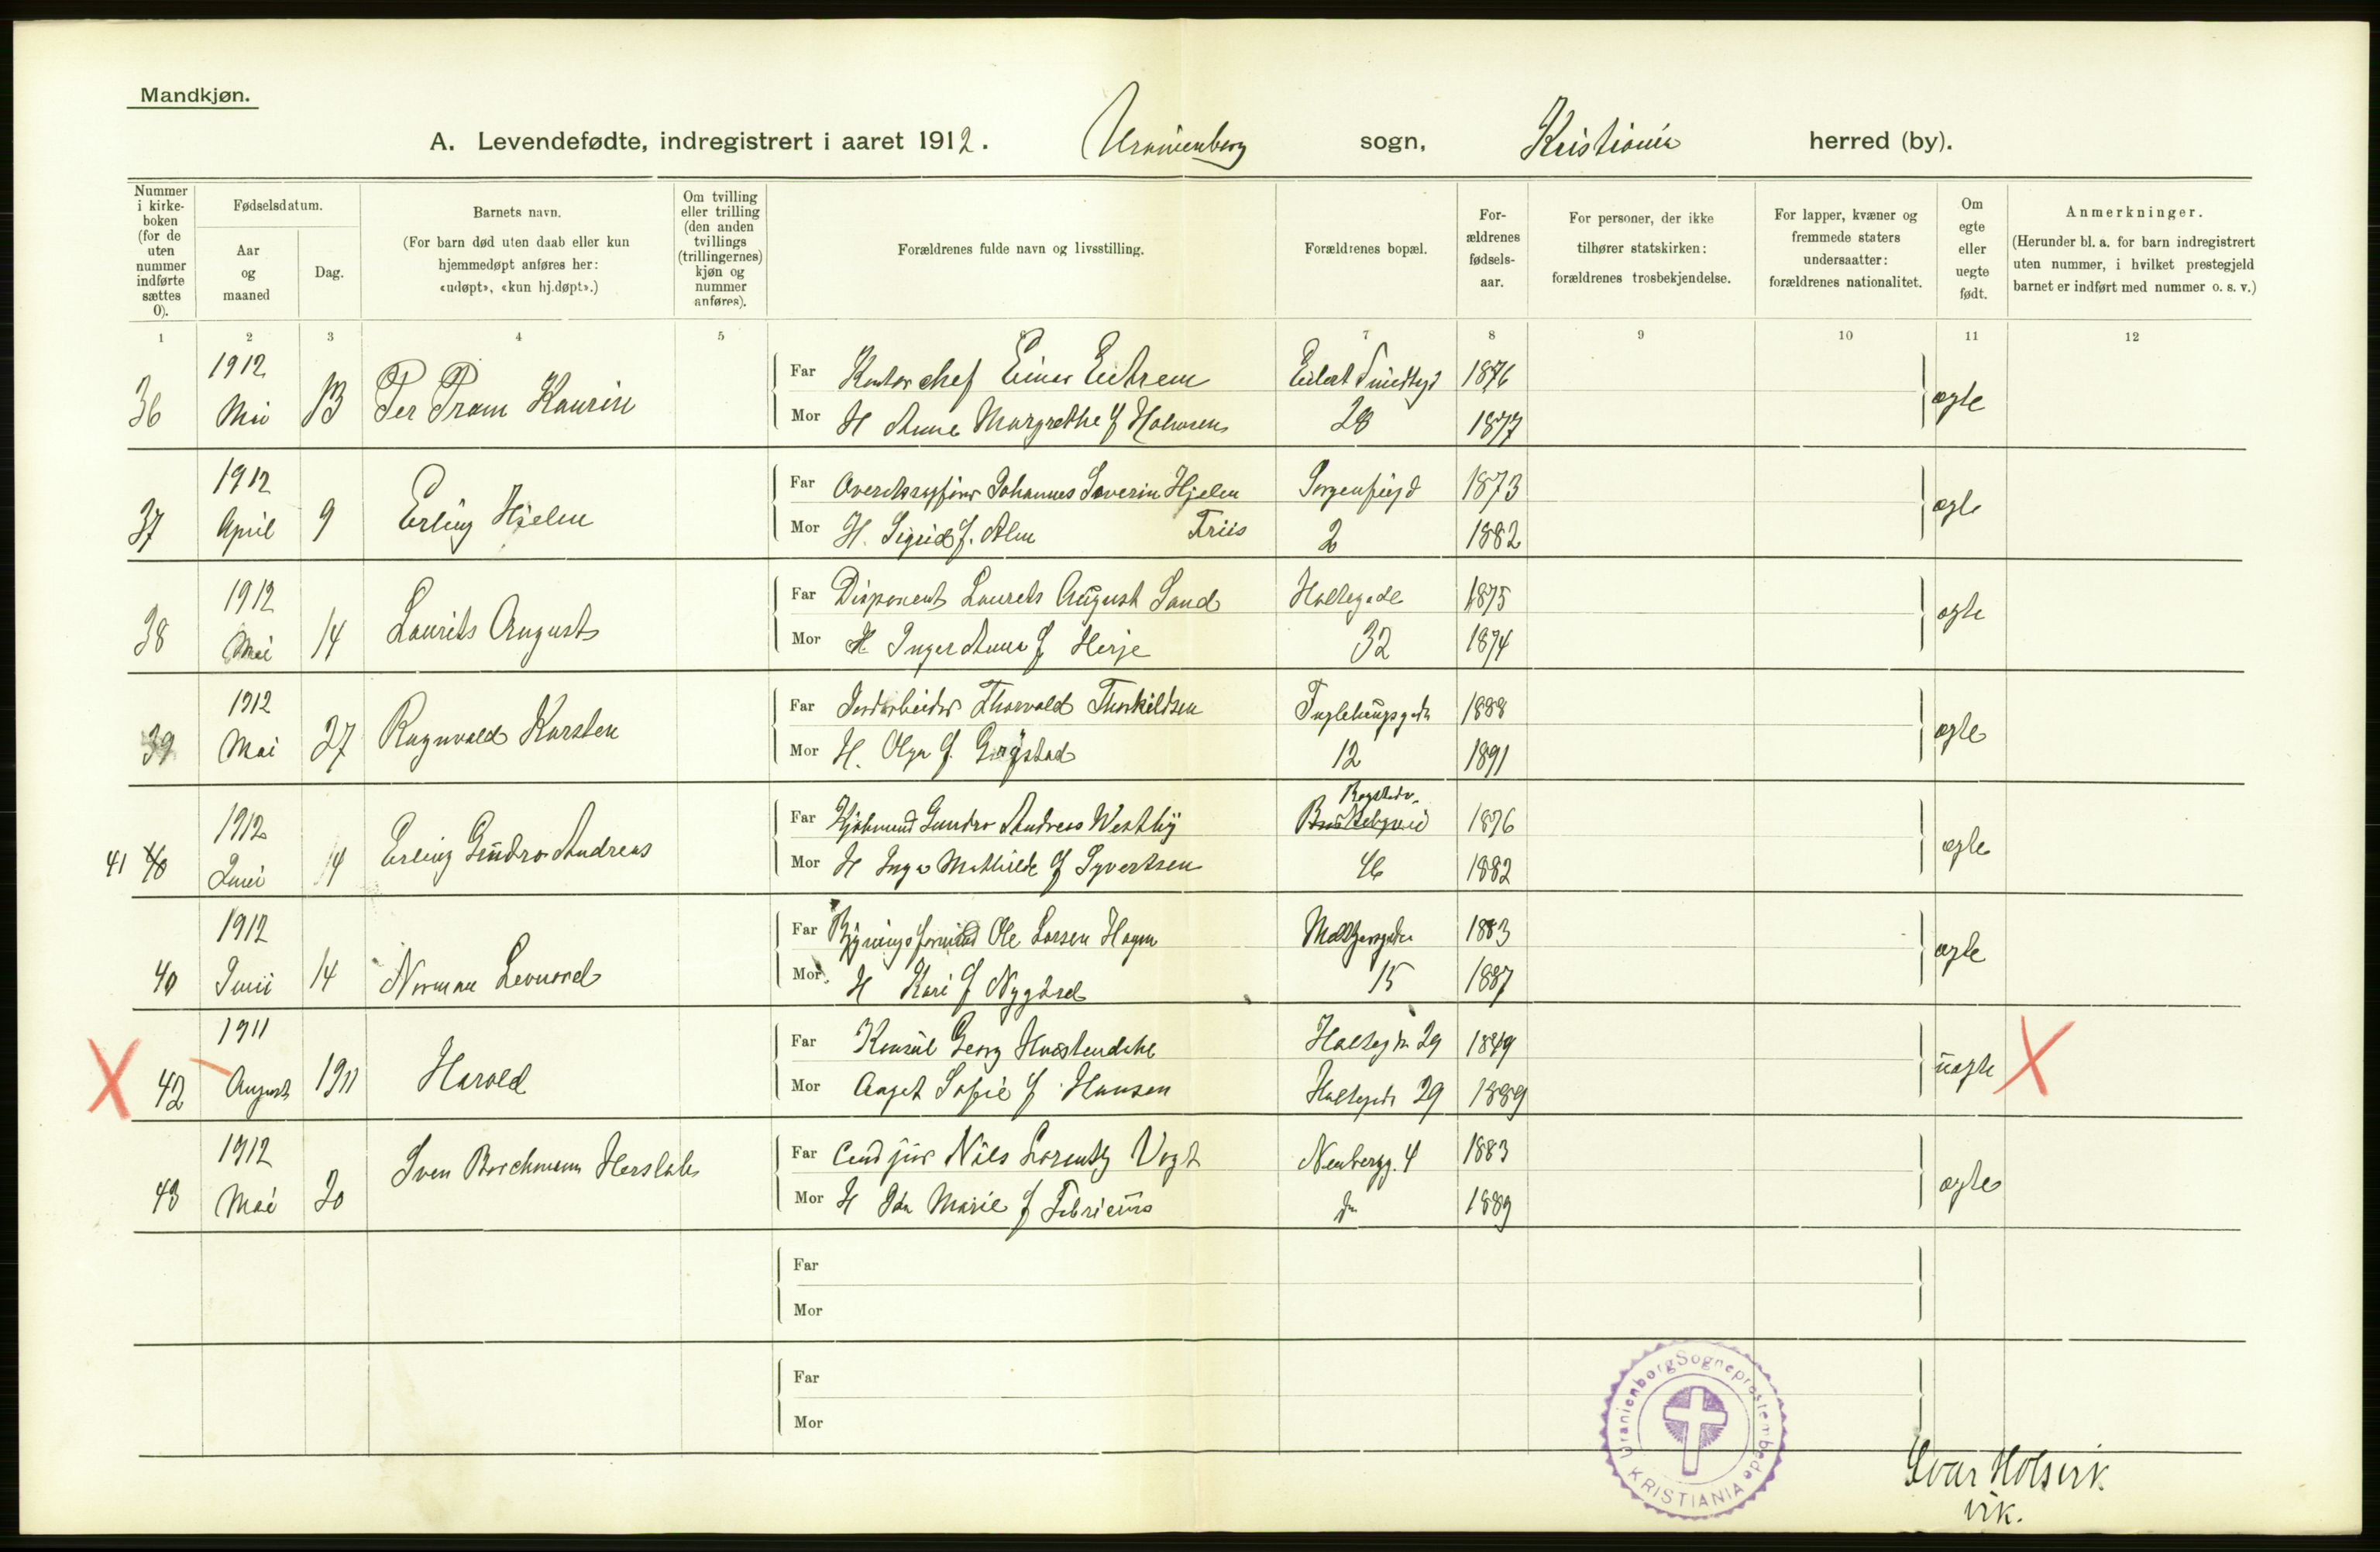 Mandkjøn.
A. Levendefødte, indregistrert i aaret 1912. Uranienborg sogn, Kristiania herred (by).
Nummer i kirke-boken (for de uten nummer indførte sættes 0).
Fødselsdatum.
Aar og maaned
Dag.
Barnets navn.
(For barn død uten daab eller kun hjemmedøpt anføres her: «udøpt», «kun hj.døpt».)
Om tvilling eller trilling (den anden tvillings (trillingernes) kjøn og nummer anføres).
Forældrenes fulde navn og livsstilling.
Forældrenes bopæl.
For-ældrenes fødsels-aar.
For personer, der ikke tilhører statskirken: forældrenes trosbekjendelse.
For lapper, kvæner og fremmede staters undersaatter: forældrenes nationalitet.
Om egte eller uegte født.
Anmerkninger.
(Herunder bl. a. for barn indregistrert uten nummer, i hvilket prestegjeld barnet er indført med nummer o. s. v.)
1 2 3 4 5 6 7 8 9 10 11 12
1912 Far Kontorchef Einar Eitrem Eilert Sundtsgd 1876
36 Mai 13 Per Pram Kaurin Mor H Anne Margrethe f Halvorsen 28 1877 ægte
1912 Far Johannes Severin Hjelm Sorgenfrigd 1873
37 April 9 Erling Hjelm Mor H. Sigrid f. Alm Friis 2 1882 ægte
1912 Far Disponent Laurits August Sand Holtegade 1875
38 Mai 14 Laurits August Mor H Inger Anna f Herje 32 1874 ægte
1912 Far Jordarbeider Thorvald Thorkildsen Fuglehaugsgade 1888
39 Mai 27 Ragnvald Karsten Mor H. Olga f. 12 1891 ægte
1912 Far Gundro Andreas Westby Bogstadv. 1876
41 40 Juni 14 Erling Gundro Andreas Mor H Inga Mathilde f Syvertsen 46 1882 ægte
1912 Far Ole Larsen Hagen Meltzersgade 1883
40 Juni 14 Norman Leonard Mor H Kari f Nygård 15 1887 ægte
1911 Far Konsul Georg Holtegt 29 1879
X 42 August 1911 Harald Mor Aagot Sofie f Hansen Holtegade 29 1889 uægte X
1912 Far Cand jur Nils Lorentz Vogt Neubergg. 4 1883
43 Mai 20 Sven Borchmann Hersleb Mor H Ida Marie f Fabricius do 1889 ægte
Far
Mor
Far
Mor
Uranienborg Sogneprestembede KRISTIANIA
Ivar Holsvik
vik.